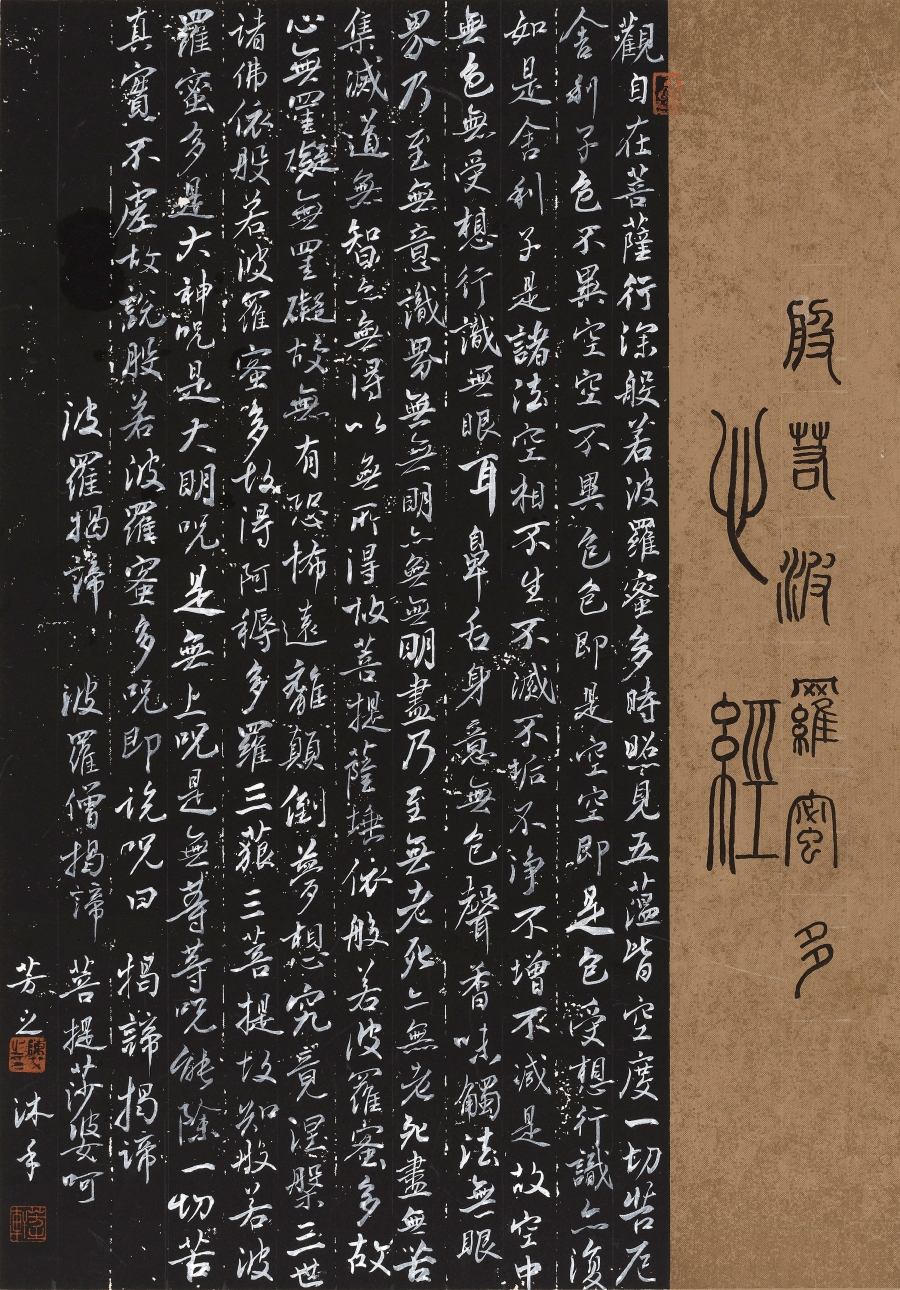 般若波羅蜜多
心經
觀自在菩薩行深般若波羅蜜多時照見五蘊皆空度一切苦厄
舍利子色不異空空不異色色即是空空即是色受想行識亦復
如是舍利子是諸法空相不生不滅不垢不净不增不減是故空中
無色無受想行識無眼耳鼻舌身意無色聲香味觸法無眼
界乃至無意識界無無明亦無無明盡乃至無老死亦無老死盡無苦
集滅道無智亦無得以無所得故菩提薩埵依般若波羅蜜多故
心無罣礙無罣礙故無有恐怖遠離顛倒夢想究竟涅槃三世
諸佛依般若波羅蜜多故得阿耨多羅三藐三菩提故知般若波
羅蜜多是大神呪是大明呪是無上呪是無等等呪能除一切苦
真實不虛故說般若波羅蜜多呪即說呪曰 揭諦揭諦
波羅揭諦 波羅僧揭諦 菩提莎婆呵
芳之 沐手